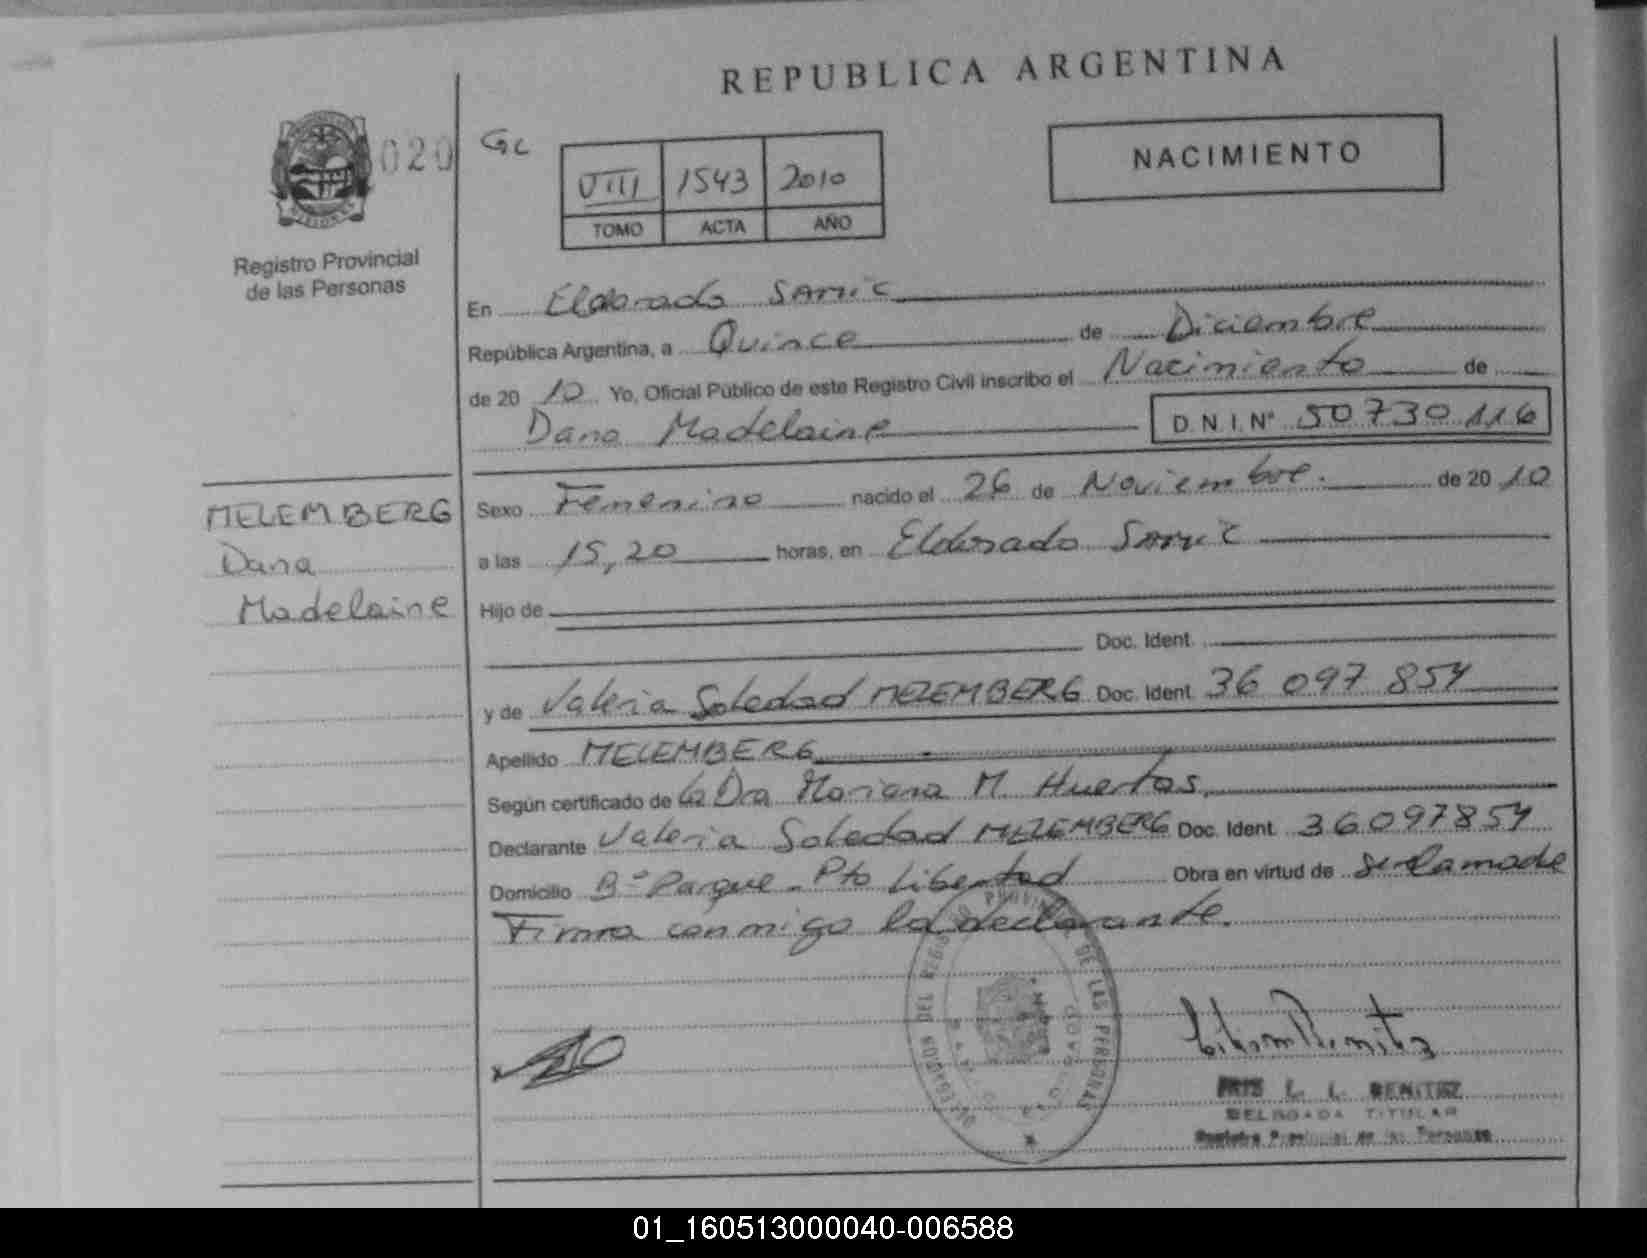 REPUBLICA ARGENTINA
020
Gc
VIII 1543 2010
TOMO ACTA AÑO
NACIMIENTO
Registro Provincial
de las Personas
En Eldorado SAMIC
República Argentina, a Quince de Diciembre
de 20 10 Yo, Oficial Público de este Registro Civil inscribo el Nacimiento de
Dana Madelaine D.N.I. Nº 50730116
MELEMBERG
Dana
Madelaine
Sexo Femenino nacido el 26 de Noviembre. de 20 10
a las 15,20 horas, en Eldorado SAMIC
Hijo de
Doc. Ident.
y de Valeria Soledad MELEMBERG Doc. Ident. 36 097 854
Apellido MELEMBERG
Según certificado de la Dra Mariana M. Huertas
Declarante Valeria Soledad MELEMBERG Doc. Ident. 36097854
Domicilio Bº Parque - Pto Libertad Obra en virtud de Ser la madre
Firma conmigo la declarante.
DEL REGISTRO PROVINCIAL DE LAS PERSONAS
L. L. BENITEZ
DELEGADA TITULAR
Registro Provincial de las Personas
01_160513000040-006588